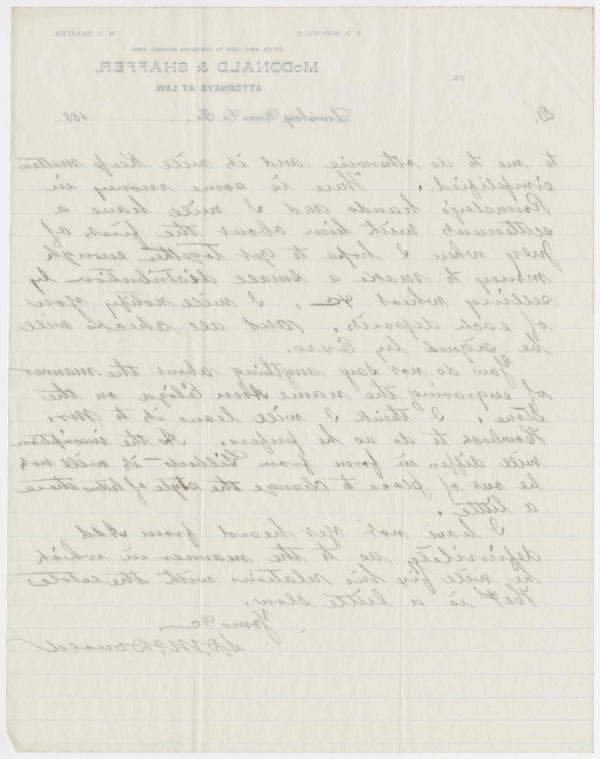 S. D. McDONALD. W. O. SHAFFER.
OFFICE, NEXT DOOR TO LEWISBURG NATIONAL BANK
McDONALD & SHAFFER,
ATTORNEYS AT LAW.
VS.
Lewisburg, Union Co. Pa. 188
2.
to me to do otherwise and it will keep matters
simplified. There is some money in
hands and I will have a
settlement with him about the first of
July when I hope to get together enough
money to make a small distribution by
selling wheat &c. I will notify you
of each deposit, and all checks will
be signed by Exrs.
You do not say anything about the manner
of engraving the name Ann Eliza on the
stone. I think I will leave it to Mr.
to do as he prefers. As the inscription
will differ in form from it will not
be out of place to change the style of letters there
a little.
I have not yet heard from
definitely as to the manner in which
he will fix his relations with the estate
that is a little slow.
Yours &c
McDonald